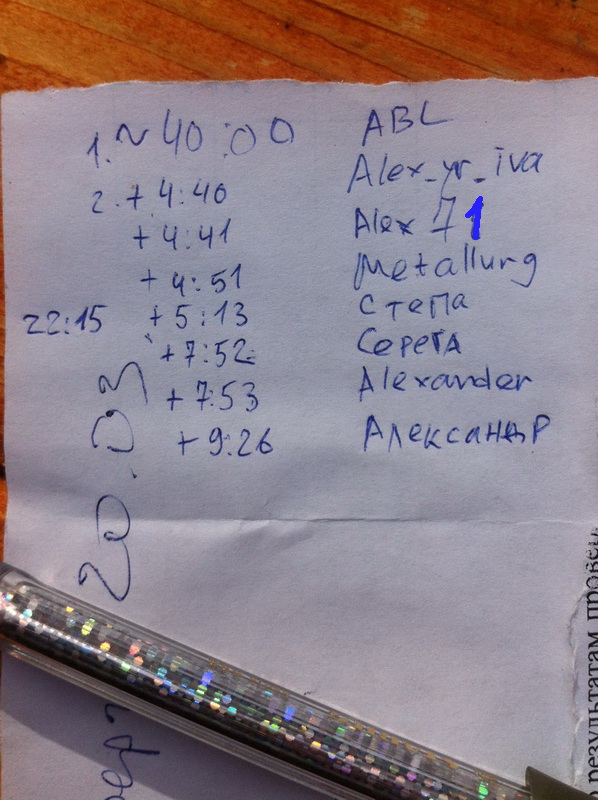 1. ~ 40:00 ABL
2. + 4:40 Alex_yr_iva
+ 4:41 Alex 71
+ 4:51 Metallurg
22:15 + 5:13 Степа
+ 7:52 Серега
+ 7:53 Alexander
+ 9:26 Александр
20.03
о результатам провед